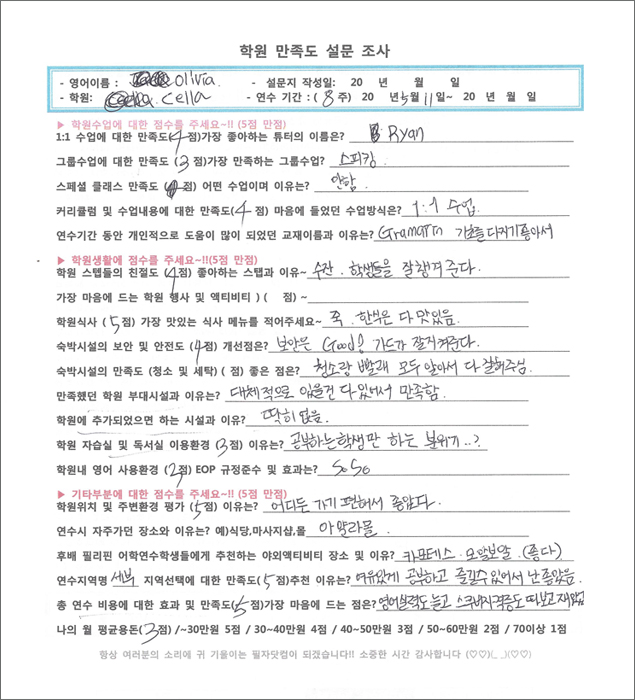 학원 만족도 설문 조사
- 영어이름 : Olivia. - 설문지 작성일: 20 년 월 일
- 학원: Cella - 연수 기간 : ( 8 주) 20 년 5 월 11 일~ 20 년 월 일
▶ 학원수업에 대한 점수를 주세요~!! (5점 만점)
1:1 수업에 대한 만족도( 4 점)가장 좋아하는 튜터의 이름은? Ryan
그룹수업에 대한 만족도 ( 3 점)가장 만족하는 그룹수업? 스피킹
스페셜 클래스 만족도 ( 점) 어떤 수업이며 이유는? 안함
커리큘럼 및 수업내용에 대한 만족도( 4 점) 마음에 들었던 수업방식은? 1:1 수업.
연수기간 동안 개인적으로 도움이 많이 되었던 교재이름과 이유는? 기초를 다지기 좋아서
▶ 학원생활에 점수를 주세요~!!(5점 만점)
학원 스텝들의 친절도 ( 4 점) 좋아하는 스탭과 이유~ 수잔. 학생들을 잘 챙겨준다.
가장 마음에 드는 학원 행사 및 액티비티 ) ( 점) ~
학원식사 ( 5 점) 가장 맛있는 식사 메뉴를 적어주세요~ 죽. 한식은 다 맛있음.
숙박시설의 보안 및 안전도 ( 4 점) 개선점은? 보안은 Good! 가드가 잘지켜준다.
숙박시설의 만족도 (청소 및 세탁) ( 점) 좋은 점은? 청소랑 빨래 모두 알아서 다 잘해주심.
만족했던 학원 부대시설과 이유는? 대체적으로 있을건 다 있어서 만족함.
학원에 추가되었으면 하는 시설과 이유? 딱히 없음.
학원 자습실 및 독서실 이용환경 ( 3 점) 이유는? 공부하는 학생만 하는 분위기..?
학원내 영어 사용환경 ( 2 점) EOP 규정준수 및 효과는? SoSo
▶ 기타부분에 대한 점수를 주세요~!! (5점 만점)
학원위치 및 주변환경 평가 ( 5 점) 이유는? 어디든 가기 편해서 좋았다.
연수시 자주가던 장소와 이유는? 예)식당,마사지샵,몰 아얄라몰
후배 필리핀 어학연수학생들에게 추천하는 야외액티비티 장소 및 이유? 카프테스. 모알보알. (좋다)
연수지역명 세부 지역선택에 대한 만족도( 5 점)추천 이유는? 여유있게 공부하고 즐길수 있어서 난 좋았음.
총 연수 비용에 대한 효과 및 만족도( 5 점)가장 마음에 드는 점은? 영어실력도 늘고 스쿠버자격증도 따보고 재밌었음
나의 월 평균용돈( 3 점) /~30만원 5점 / 30~40만원 4점 / 40~50만원 3점 / 50~60만원 2점 / 70이상 1점
항상 여러분의 소리에 귀 기울이는 필자닷컴이 되겠습니다!! 소중한 시간 감사합니다 (♡♡)(_ _)(♡♡)